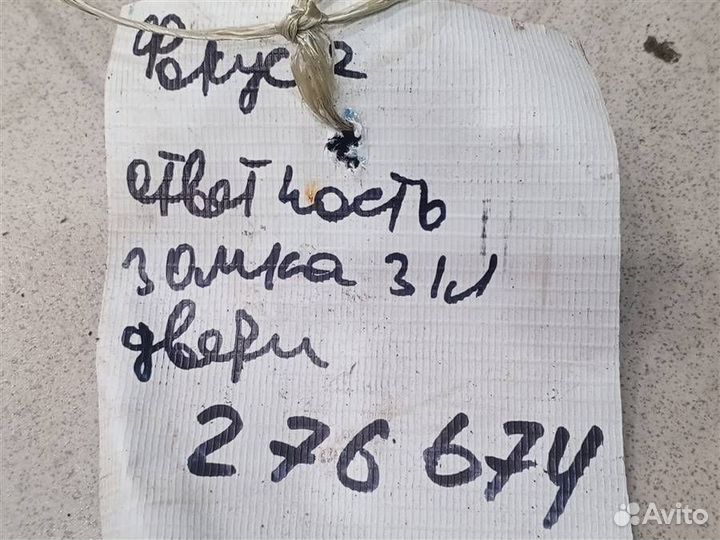 Фокус 2
ответность
замка з/л
двери
276 674
Avito